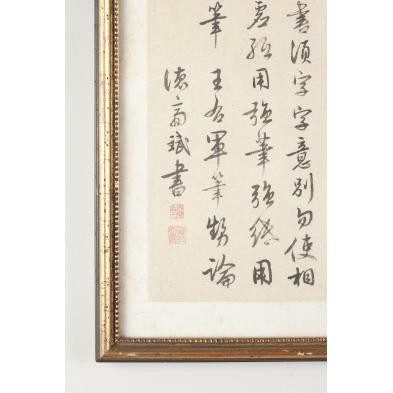 書須字字意別勿使相
虛紙用強筆強紙用
筆 王右軍筆勢論
德斌書